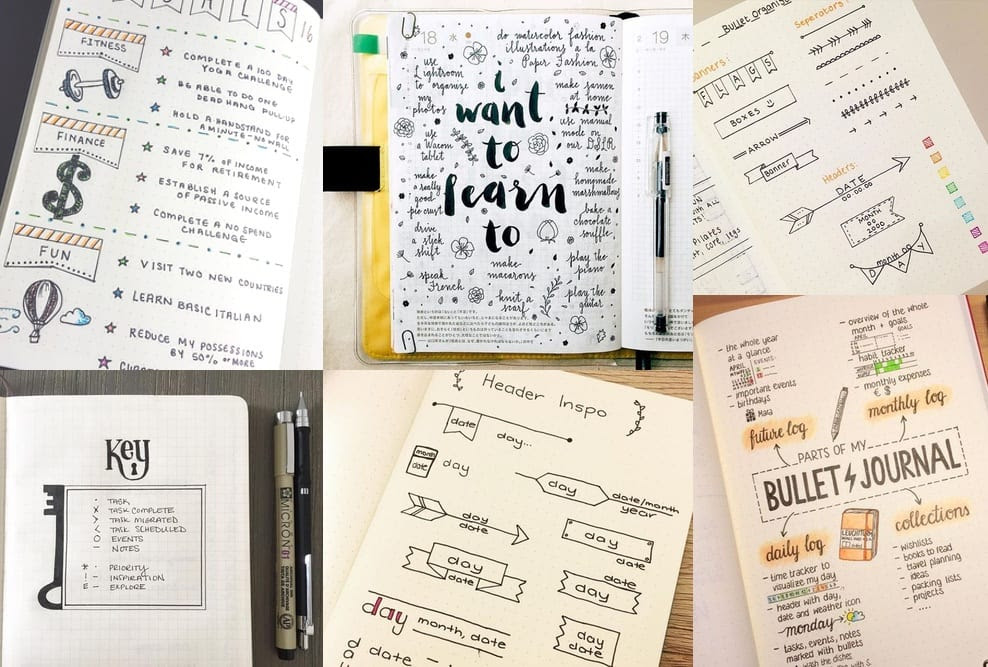 GOALS 16
FITNESS
COMPLETE A 100 DAY
YOGA CHALLENGE
BE ABLE TO DO ONE
DEAD HANG PULL-UP
HOLD A HANDSTAND FOR
A MINUTE-NO WALL
FINANCE
SAVE 7% OF INCOME
FOR RETIREMENT
ESTABLISH A SOURCE
OF PASSIVE INCOME
COMPLETE A NO SPEND
CHALLENGE
FUN
VISIT TWO NEW COUNTRIES
LEARN BASIC ITALIAN
REDUCE MY POSSESSIONS
BY 50% OR MORE
18 水
2 19 木
do watercolor fashion
illustrations a la
Paper Fashion
use
Lightroom
to organize
my
photos
use
a Wacom
tablet
make
a really
good
pie crust
drive
a stick
shift
speak
French
i
want
to
learn
to
make
macarons
knit a
scarf
make ramen
at home
use manual
mode on
our DSLR
make
homemade
marshmallows
bake a
chocolate
souffle
play the
piano
play the
guitar
Bullet Organis
Banners:
FLAGS
BOXES
ARROW
Banner
Seperators
Headers:
DATE
00.00.00
MONTH
00
2000
month 00
DAY
Pilates
core, legs
Key
· TASK
X TASK COMPLETE
> TASK MIGRATED
< TASK SCHEDULED
O EVENTS
— NOTES
* · PRIORITY
! - INSPIRATION
E - EXPLORE
MICRON
Header Inspo
date
day...
month
date
day
day
date/month
year
day
date
day
date
day
date
date
day
day
month, date
day
date
date
PARTS OF MY
BULLET JOURNAL
future log
the whole year
at a glance
APRIL
EVENTS:
- important events
- birthdays
Maia
monthly log
overview of the whole
month + goals
GOALS
habit tracker
APRIL
- monthly expenses
€ $
daily log
- time tracker to
visualize my day
- header with day,
date and weather icon
monday
- tasks, events, notes
marked with bullets
- wash the dishes
collections
- wishlists
- books to read
- travel planning
- ideas
- packing lists
- projects
....
LEUCHTTURM